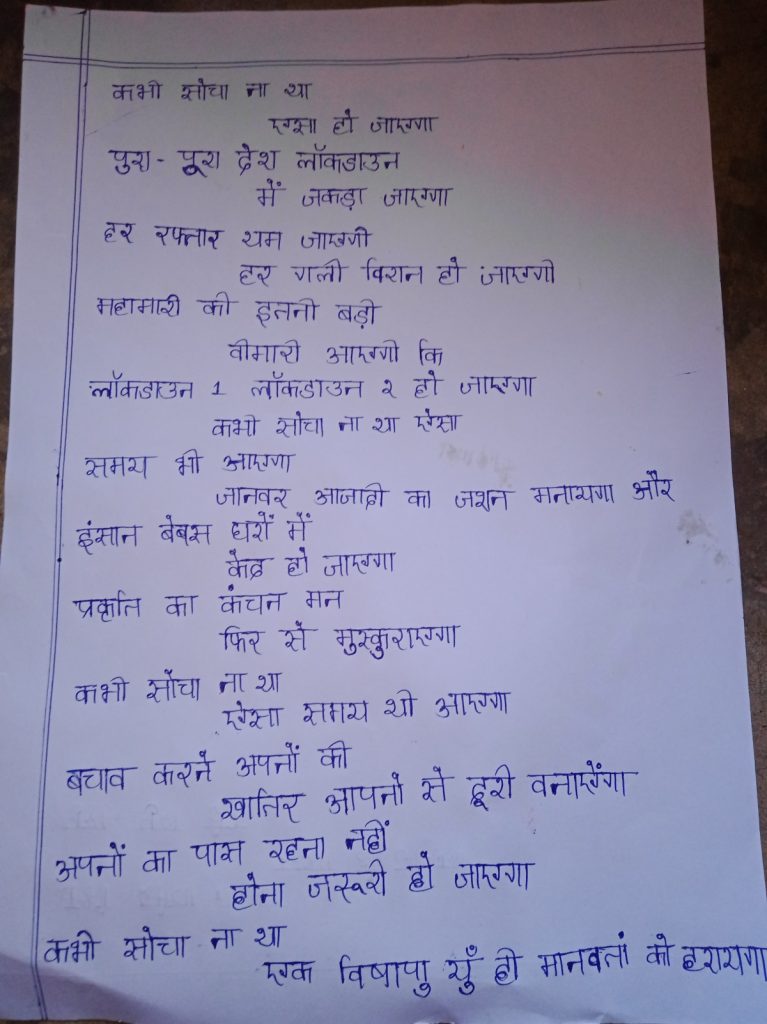 कभी सोचा ना था
एसा हो जाएगा
पुरा - पूरा देश लॉकडाउन
में जकड़ा जाएगा
हर रफ्तार थम जाएगी
हर गली विरान हो जाएगी
महामारी की इतनी बड़ी
वीमारी आएगी कि
लॉकडाउन 1 लॉकडाउन २ हो जाएगा
कभी सोचा ना था ऐसा
समय भी आएगा
जानवर आजादी का जशन मनायगा और
इंसान बेबस घरों में
केद हो जाएगा
प्रकृति का कंचन मन
फिर से मुस्कुराएगा
कभी सोचा ना था
ऐसा समय भी आएगा
बचाव करने अपनों की
खातिर आपनो से दूरी वनाऐंगा
अपनों का पास रहना नहीं
होना जरूरी हो जाएगा
कभी सोचा ना था
एक विषाणु यूँ ही मानवतां को हरायगा